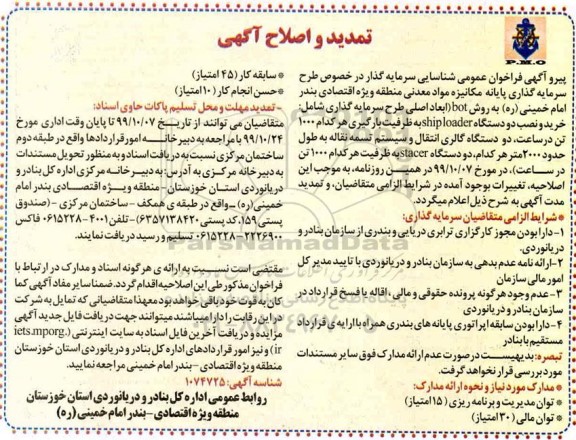 تمدید و اصلاح آگهی
P.M.O
پیرو آگهی فراخوان عمومی شناسایی سرمایه گذار در خصوص طرح
سرمایه گذاری پایانه مکانیزه مواد معدنی منطقه ویژه اقتصادی بندر
امام خمینی (ره) به روش bot (ابعاد اصلی طرح سرمایه گذاری شامل:
خرید و نصب دو دستگاه shiploader به ظرفیت بارگیری هر کدام ۱۰۰۰
تن در ساعت، دو دستگاه گالری انتقال و سیستم تسمه نقاله به طول
حدود ۲۰۰۰ متر هر کدام، دو دستگاه stacer به ظرفیت هر کدام ۱۰۰۰ تن
در ساعت)، در مورخ ۹۹/۱۰/۰۷ در همین روزنامه، به موجب این
اصلاحیه، تغییرات بوجود آمده در شرایط الزامی متقاضیان، و تمدید
مدت آگهی به شرح ذیل اعلام میگردد.
* شرایط الزامی متقاضیان سرمایه گذاری:
۱- دارا بودن مجوز کارگزاری ترابری دریایی و بندری از سازمان بنادر و
دریانوردی.
۲- ارائه نامه عدم بدهی به سازمان بنادر و دریانوردی با تایید مدیر کل
امور مالی سازمان
۳- عدم وجود هرگونه پرونده حقوقی و مالی، اقاله یا فسخ قرارداد در
سازمان بنادر و دریانوردی
۴- دارا بودن سابقه اپراتوری پایانه های بندری همراه با ارایه ی قرارداد
مستقیم با بنادر
تبصره: بدیهیست در صورت عدم ارائه مدارک فوق سایر مستندات
مورد بررسی قرار نخواهد گرفت.
* مدارک مورد نیاز و نحوه ارائه مدارک:
* توان مدیریت و برنامه ریزی (۱۵ امتیاز)
* توان مالی (۳۰ امتیاز)
* سابقه کار (۴۵ امتیاز)
* حسن انجام کار (۱۰ امتیاز)
- تمدید مهلت و محل تسلیم پاکات حاوی اسناد:
متقاضیان می توانند از تاریخ ۹۹/۱۰/۰۷ تا پایان وقت اداری مورخ
۹۹/۱۰/۲۴ با مراجعه به دبیرخانه امور قراردادها واقع در طبقه دوم
ساختمان مرکزی نسبت به دریافت اسناد و به منظور تحویل مستندات
به دبیرخانه مرکزی به آدرس: به دبیرخانه مرکزی اداره کل بنادر و
دریانوردی استان خوزستان – منطقه ویژه اقتصادی بندر امام
خمینی (ره) – واقع در طبقه ی همکف – ساختمان مرکزی – (صندوق
پستی ۱۵۹، کد پستی ۶۳۵۷۱۳۸۴۲۰) – تلفن ۴۰۰۱–۰۶۱۵۲۲۸ فاکس
۰۶۱۵۲۲۸–۲۲۲۶۹۰۰ تسلیم و رسید دریافت نمایند.
مقتضی است نسبت به ارائه ی هر گونه اسناد و مدارک در ارتباط با
فراخوان مذکور طی این اصلاحیه اقدام گردد. ضمنا سایر مفاد آگهی کما
کان به قوت خود باقی خواهد بود معهذا متقاضیانی که تمایل به شرکت
در این رقابت را دارا میباشند میتوانند جهت دریافت فایل جدید آگهی
مزایده و دریافت آخرین فایل اسناد به سایت اینترنتی (iets.mporg.
ir) و نیز امور قراردادهای اداره کل بنادر و دریانوردی استان خوزستان
منطقه ویژه اقتصادی – بندر امام خمینی مراجعه نمایید.
شناسه آگهی: ۱۰۷۴۷۲۵
روابط عمومی اداره کل بنادر و دریانوردی استان خوزستان
منطقه ویژه اقتصادی – بندر امام خمینی (ره)
ParsNamadData